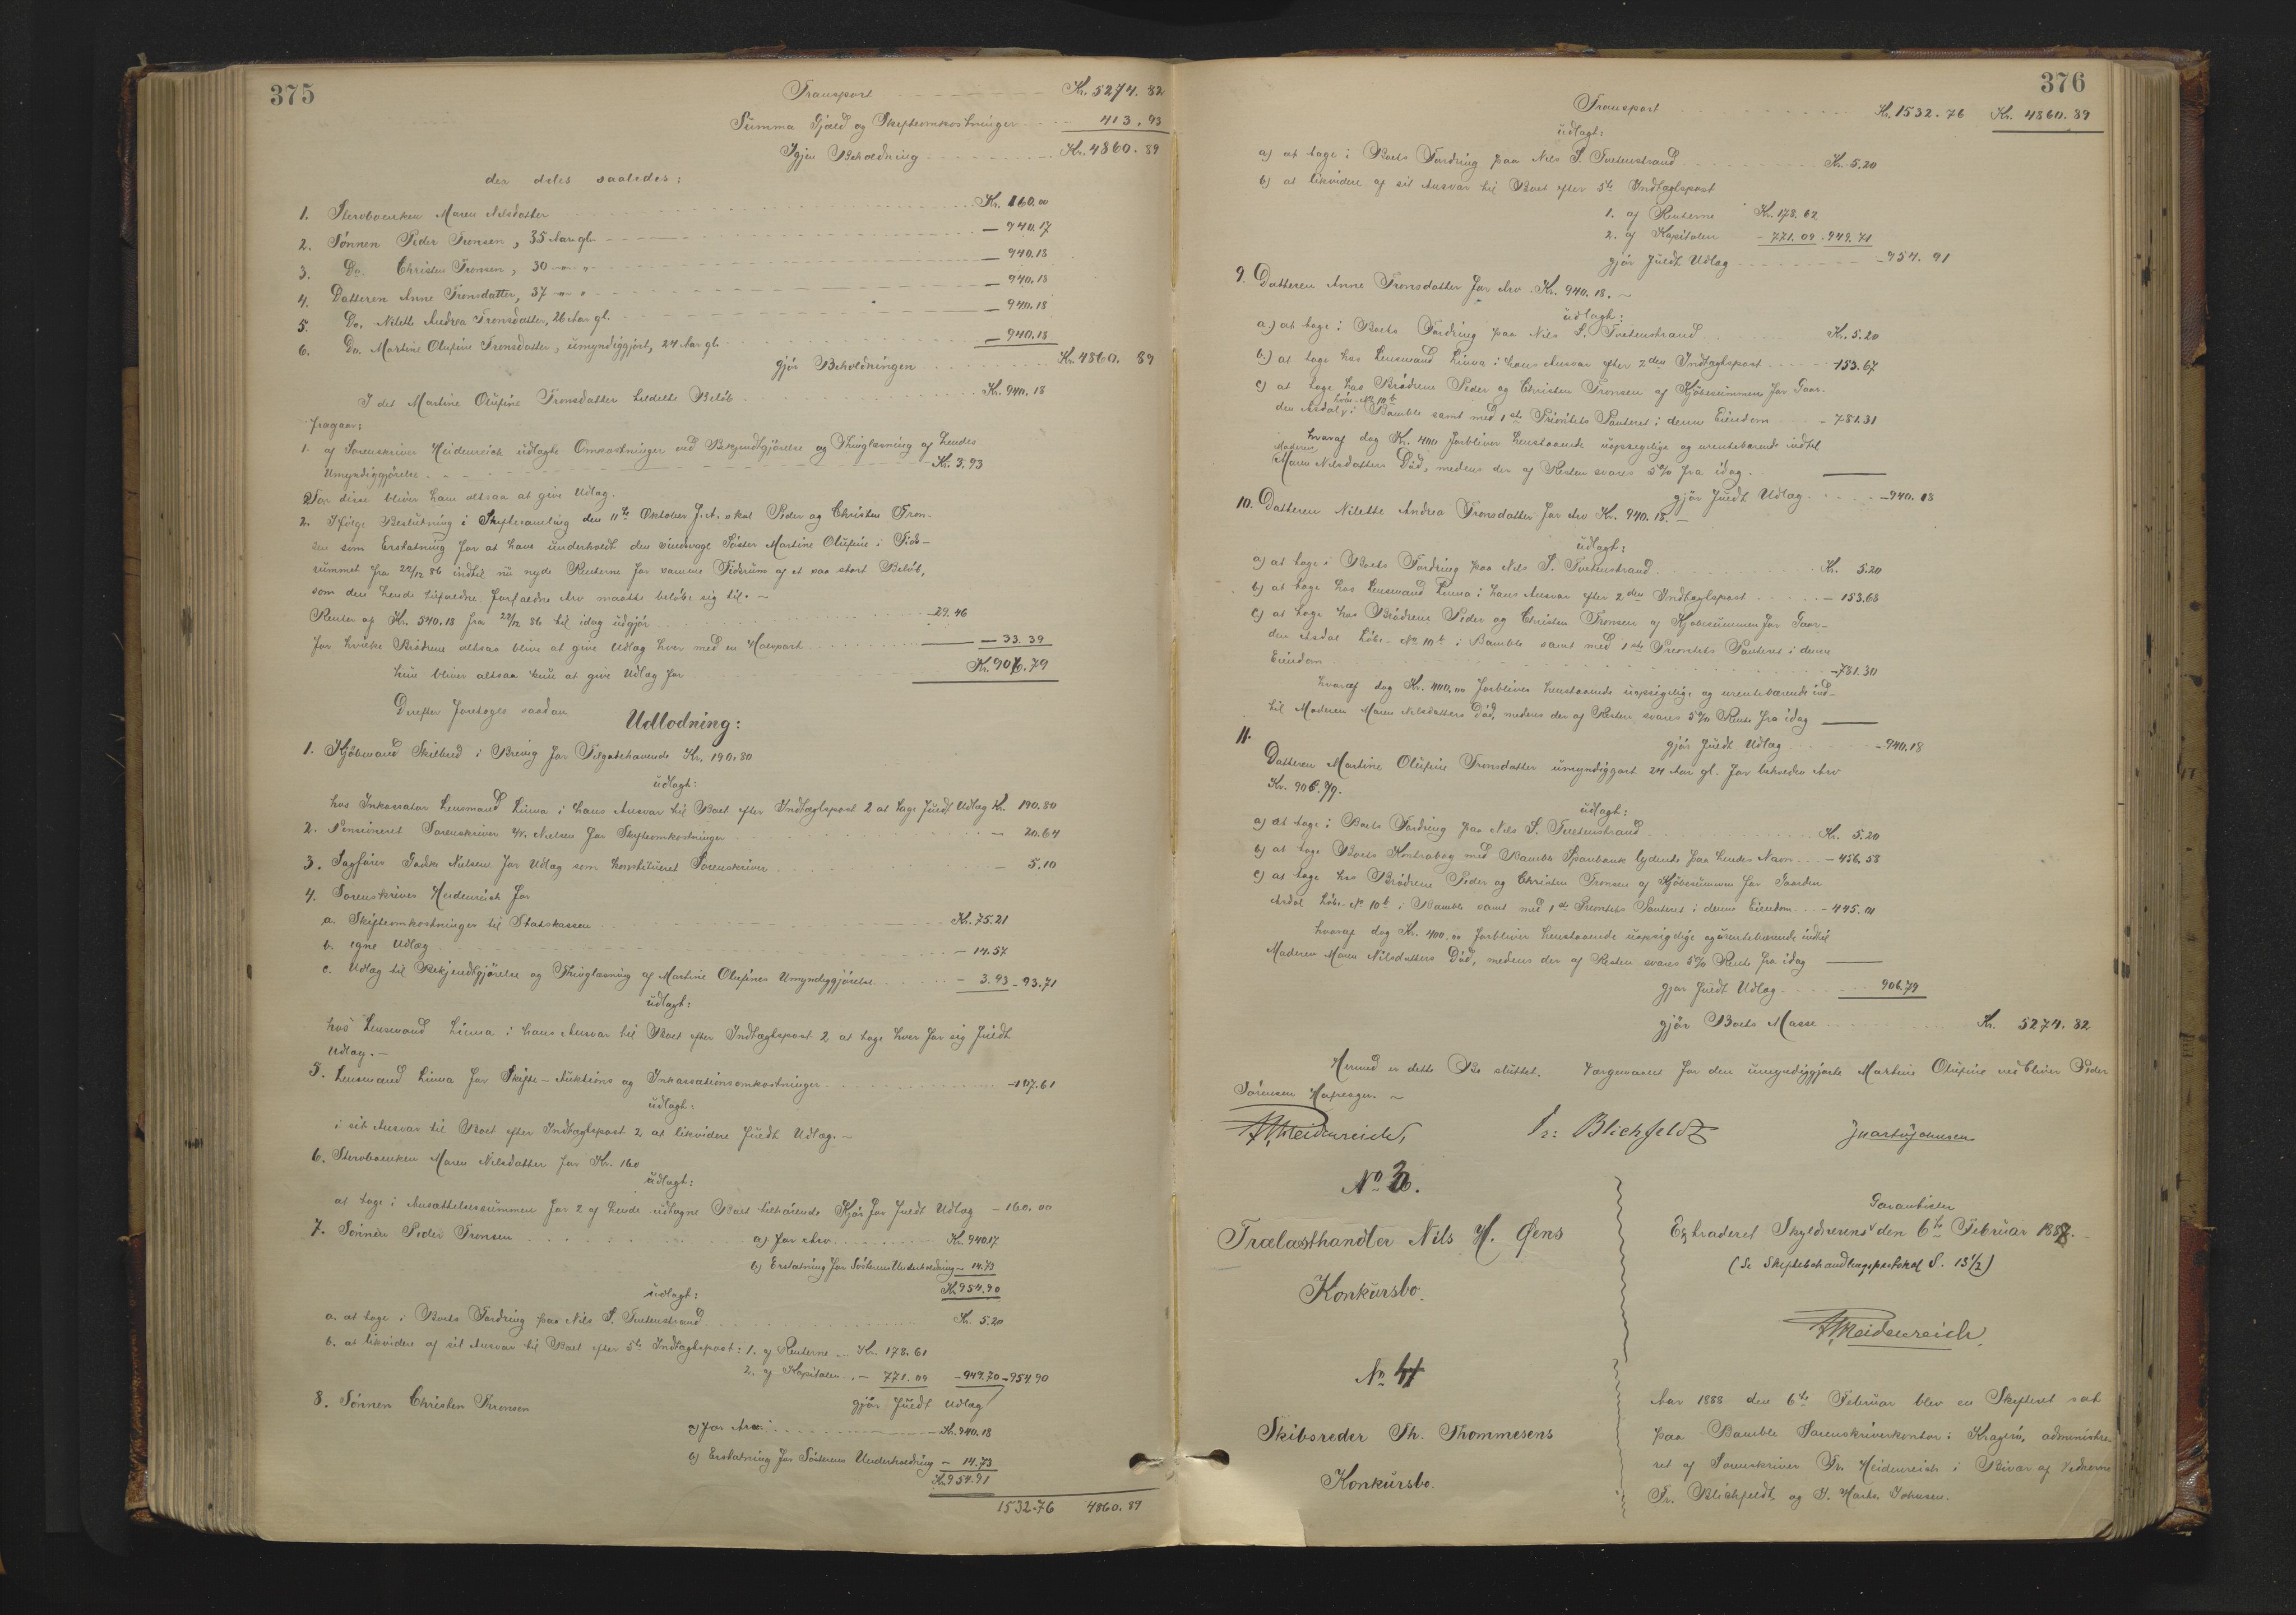 375
Transport Kr. 5274. 82
Summa Gjæld og Skifteomkostninger 413. 93
Igjen Beholdning Kr. 4860. 89
der deles saaledes:
1. Stervboenken Maren Nilsdatter Kr. 160.00
2. Sønnen Peder Tronsen, 35 Aar gl. — 940.17
3. Do. Christen Tronsen, 30 — 940.18
4. Datteren Anne Tronsdatter, 37 — 940.18
5. Do. Nilette Andrea Tronsdatter, 26 Aar gl. — 940.18
6. Do. Martine Olufine Tronsdatter, umyndiggjort, 24 Aar gl. — 940.18
gjør Beholdningen Kr. 4860. 89
I det Martine Olufine Tronsdatter tildelte Beløb Kr. 940. 18
fragaar:
1. af Sorenskriver Heidenreich udlagte Omkostninger ved Bekjendtgjørelse og Thinglæsning af hendes
Umyndiggjørelse Kr. 3.93
For disse bliver ham altsaa at give Udlæg.
2. Ifølge Beslutning i Skiftesamling den 11te Oktober f.A. skal Peder og Christen Tron-
sen som Erstatning for at have underholdt den sindsvage Søster Martine Olufine i Tids-
rummet fra 22/12 86 indtil nu nyde Renterne for samme Tidsrum af et saa stort Beløb,
som den hende tilfaldne Arv maatte beløbe sig til. —
Renter af Kr. 540.18 fra 22/12 86 til idag udgjør 29. 46
for hvilke Brødrene altsaa blive at give Udlæg hver med en Halvpart — 33. 39
hun bliver altsaa kun at give Udlæg for Kr. 906. 79
Derefter foretoges saadan
Udlodning:
1. Kjøbmand Skilbred i Brevig for Tilgodehavende Kr. 190.80
udlagt:
hos Inkassator Lensmand Linna i hans Ansvar til Boet efter Indtægtspost 2 at tage fuldt Udlæg Kr. 190.80
2. Pensioneret Sorenskriver Nielsen for Skifteomkostninger — 20.64
3. Sagfører Nielsen for Udlæg som konstitueret Sorenskriver — 5.10
4. Sorenskriver Heidenreich for
a. Skifteomkostninger til Statskassen Kr. 75.21
b. egne Udlæg — 14.57
c. Udlæg til Bekjendtgjørelse og Thinglæsning af Martine Olufines Umyndiggjørelse — 3.93 - 93.71
udlagt:
hos Lensmand Linna i hans Ansvar til Boet efter Indtægtspost 2 at tage hver for sig fuldt
Udlæg. —
5. Lensmand Linna for Skifte- Auktions og Inkassationsomkostninger
udlagt:
i sit Ansvar til Boet efter Indtægtspost 2 at likvidere fuldt Udlæg. —
6. Stervboenken Maren Nilsdatter for Kr. 160
udlagt:
at tage i Ansættelsessummen for 2 af hende udtagne Boet tilhørende Kjør for fuldt Udlæg — 160. 00
7. Sønnen Peder Tronsen a) for Arv Kr. 940.17
b) Erstatning for Søsterens Underholdning — 14.73
Kr. 954.90
udlagt:
a. at tage i Boets Fordring paa Nils S. Tvetenstrand Kr. 5.20
b. at likvidere af sit Ansvar til Boet efter 5te Indtægtspost: 1. af Renterne — Kr. 178. 61
2. af Kapitalen — 771. 09 - 949.70 - 954.90
gjør fuldt Udlæg
8. Sønnen Christen Tronsen
a) for Arv Kr. 940.18
b) Erstatning for Søsterens Underholdning — 14.73
Kr. 954.91
1532.76 4860. 89
376
Transport Kr. 1532. 76 Kr. 4860. 89
udlagt:
a) at tage i Boets Fordring paa Nils S. Tvetenstrand Kr. 5.20
b) at likvidere af sit Ansvar til Boet efter 5te Indtægtspost
1. af Renterne Kr. 178. 62
2. af Kapitalen - 771. 09 - 949. 71
gjør fuldt Udlæg - 954. 91
9. Datteren Anne Tronsdatter for Arv Kr. 940. 18. —
udlagt:
a.) at tage i Boets Fordring paa Nils S. Tvetenstrand Kr. 5.20
b.) at tage hos Lensmand Linna i hans Ansvar efter 2den Indtægtspost 153.67
c) at tage hos Brødrene Peder og Christen Tronsen af Kjøbesummen for Gaar-
den Asdal, Løbe-No 10b i Bamble samt med 1ste Prioritets Panteret i denne Eiendom - 781.31
hvoraf dog Kr. 400 forbliver henstaaende uopsigelige og urentebærende indtil
Moderen
Maren Nilsdatters Død, medens der af Resten svares 5 % fra idag.
gjør fuldt Udlæg - 940. 18
10. Datteren Nilette Andrea Tronsdatter for Arv Kr. 940. 18. —
udlagt:
a) at tage i Boets Fordring paa Nils S. Tvetenstrand Kr. 5.20
b) at tage hos Lensmand Linna i hans Ansvar efter 2den Indtægtspost — 153.68
c) at tage hos Brødrene Peder og Christen Tronsen af Kjøbesummen for Gaar-
den Asdal Løbe-No 10b i Bamble samt med 1ste Prioritets Panteret i denne
Eiendom - 781.30
hvoraf dog Kr. 400.00 forbliver henstaaende uopsigelige og urentebærende ind-
til Moderen Maren Nilsdatters Død, medens der af Resten svares 5 % Rente fra idag
gjør fuldt Udlæg - 940. 18
11. Datteren Martine Olufine Tronsdatter umyndiggjort 24 Aar gl. for beholden Arv
Kr. 906. 79.
udlagt:
a) at tage i Boets Fordring paa Nils S. Tvetenstrand Kr. 5.20
b) at tage Boets Kontrabog med Bamble Sparebank lydende paa hendes Navn - 456. 58
c) at tage hos Brødrene Peder og Christen Tronsen af Kjøbesummen for Gaarden
Asdal Løbe-No 10b i Bamble samt med 1ste Prioritets Panteret i denne Eiendom - 445. 01
hvoraf dog Kr. 400. 00 forbliver henstaaende uopsigelige og urentebærende indtil
Moderen Maren Nilsdatters Død, medens der af Resten svares 5 % Rente fra idag
gjør fuldt Udlæg 906.79
gjør Boets Masse Kr. 5274. 82
Hermed er dette Bo sluttet. Værgemaalet for den umyndiggjorte Martine Olufine Peder
Sørensen
Heidenreich, Fr: Blichfeldt J Marth Johnsen
No 3.
Trælasthandler Nils H. Øens
Konkursbo.
Garantister
Extraderet Skyldnerens den 6te Februar 1888.
(Se Skiftebehandlingsprotokol S. 13 1/2)
Heidenreich
No 4
Skibsreder Th. Thommesens
Konkursbo.
Aar 1888 den 6te Februar blev en Skifteret sat
paa Bamble Sorenskriverkontor i Kragerø, administre-
ret af Sorenskriver Fr. Heidenreich i Bivær af Vidnerne
Fr. Blichfeldt og J. Marth. Johnsen.